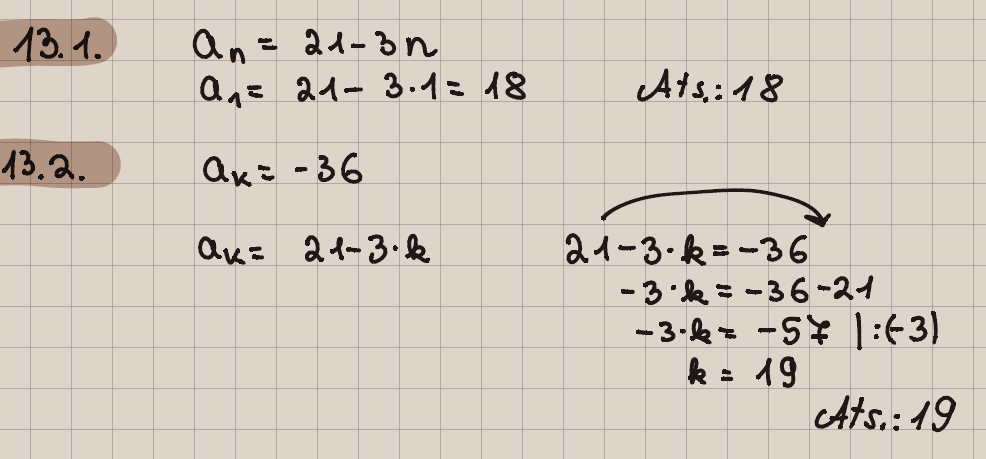 13.1. aₙ = 21-3n
a₁ = 21- 3·1 = 18 Ats.: 18
13.2. aₖ = -36
aₖ = 21-3·k 21-3·k = -36
-3·k = -36-21
-3·k = -57 |:(-3)
k = 19
Ats.: 19